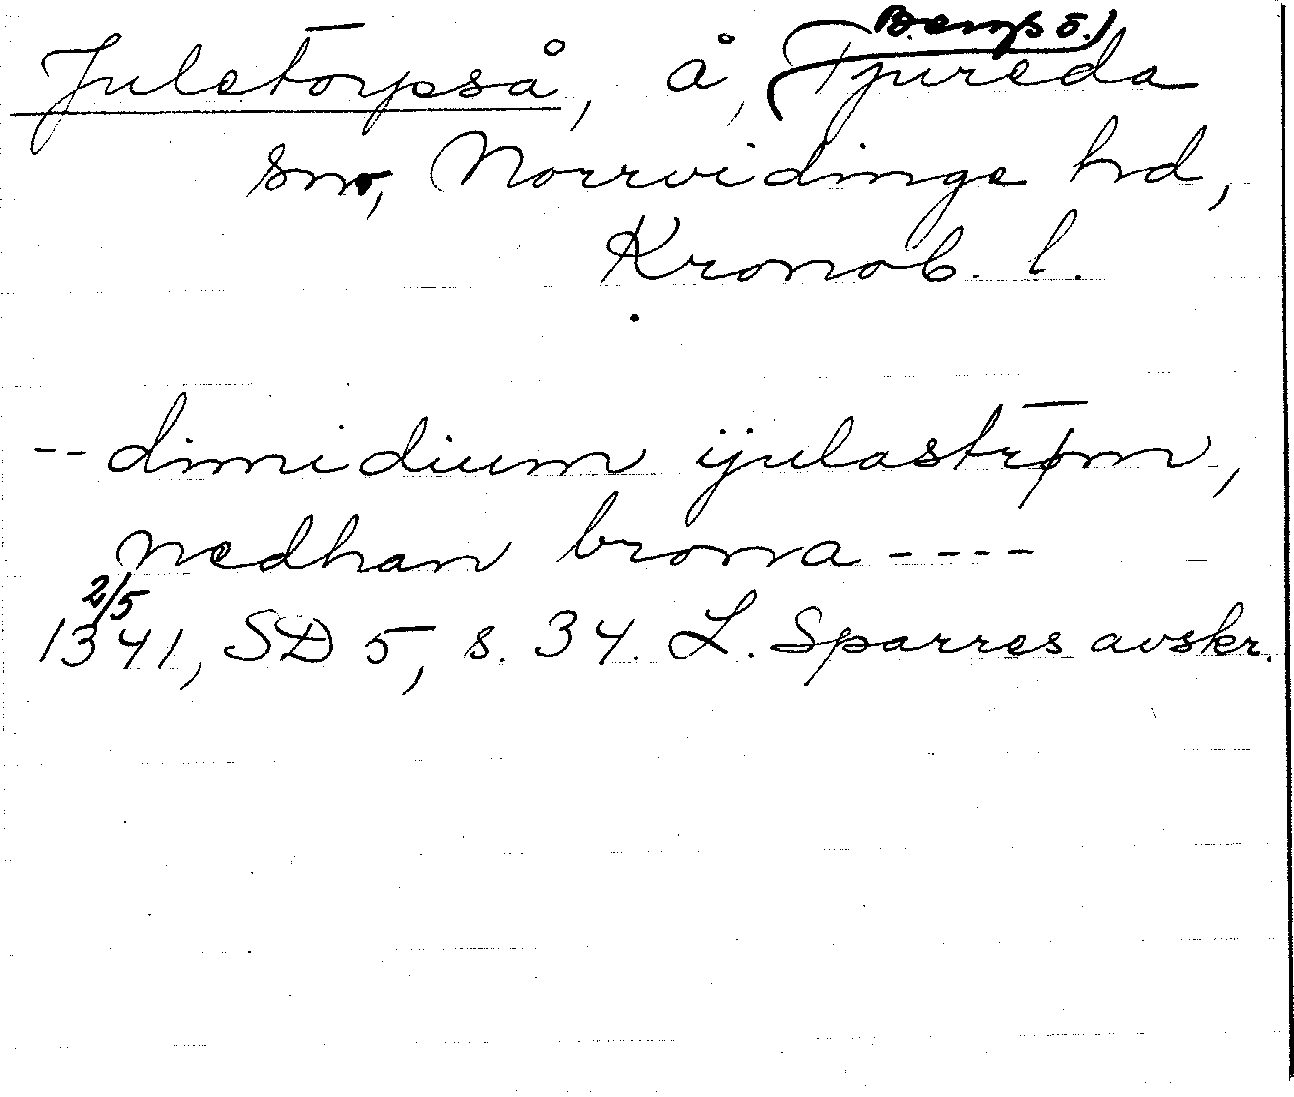 Juletorpså, å, Tjureda
sn, Norrvidinge hd,
Kronob. l.
-- dimidium ijulastrøm,
nedhan brona ----
2/5
1341, SD 5, s. 34. L. Sparres avskr.